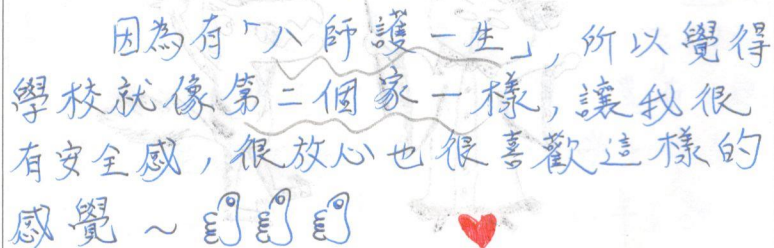 因為有「八師護一生」,所以覺得
學校就像第二個家一樣,讓我很
有安全感,很放心也很喜歡這樣的
感覺~